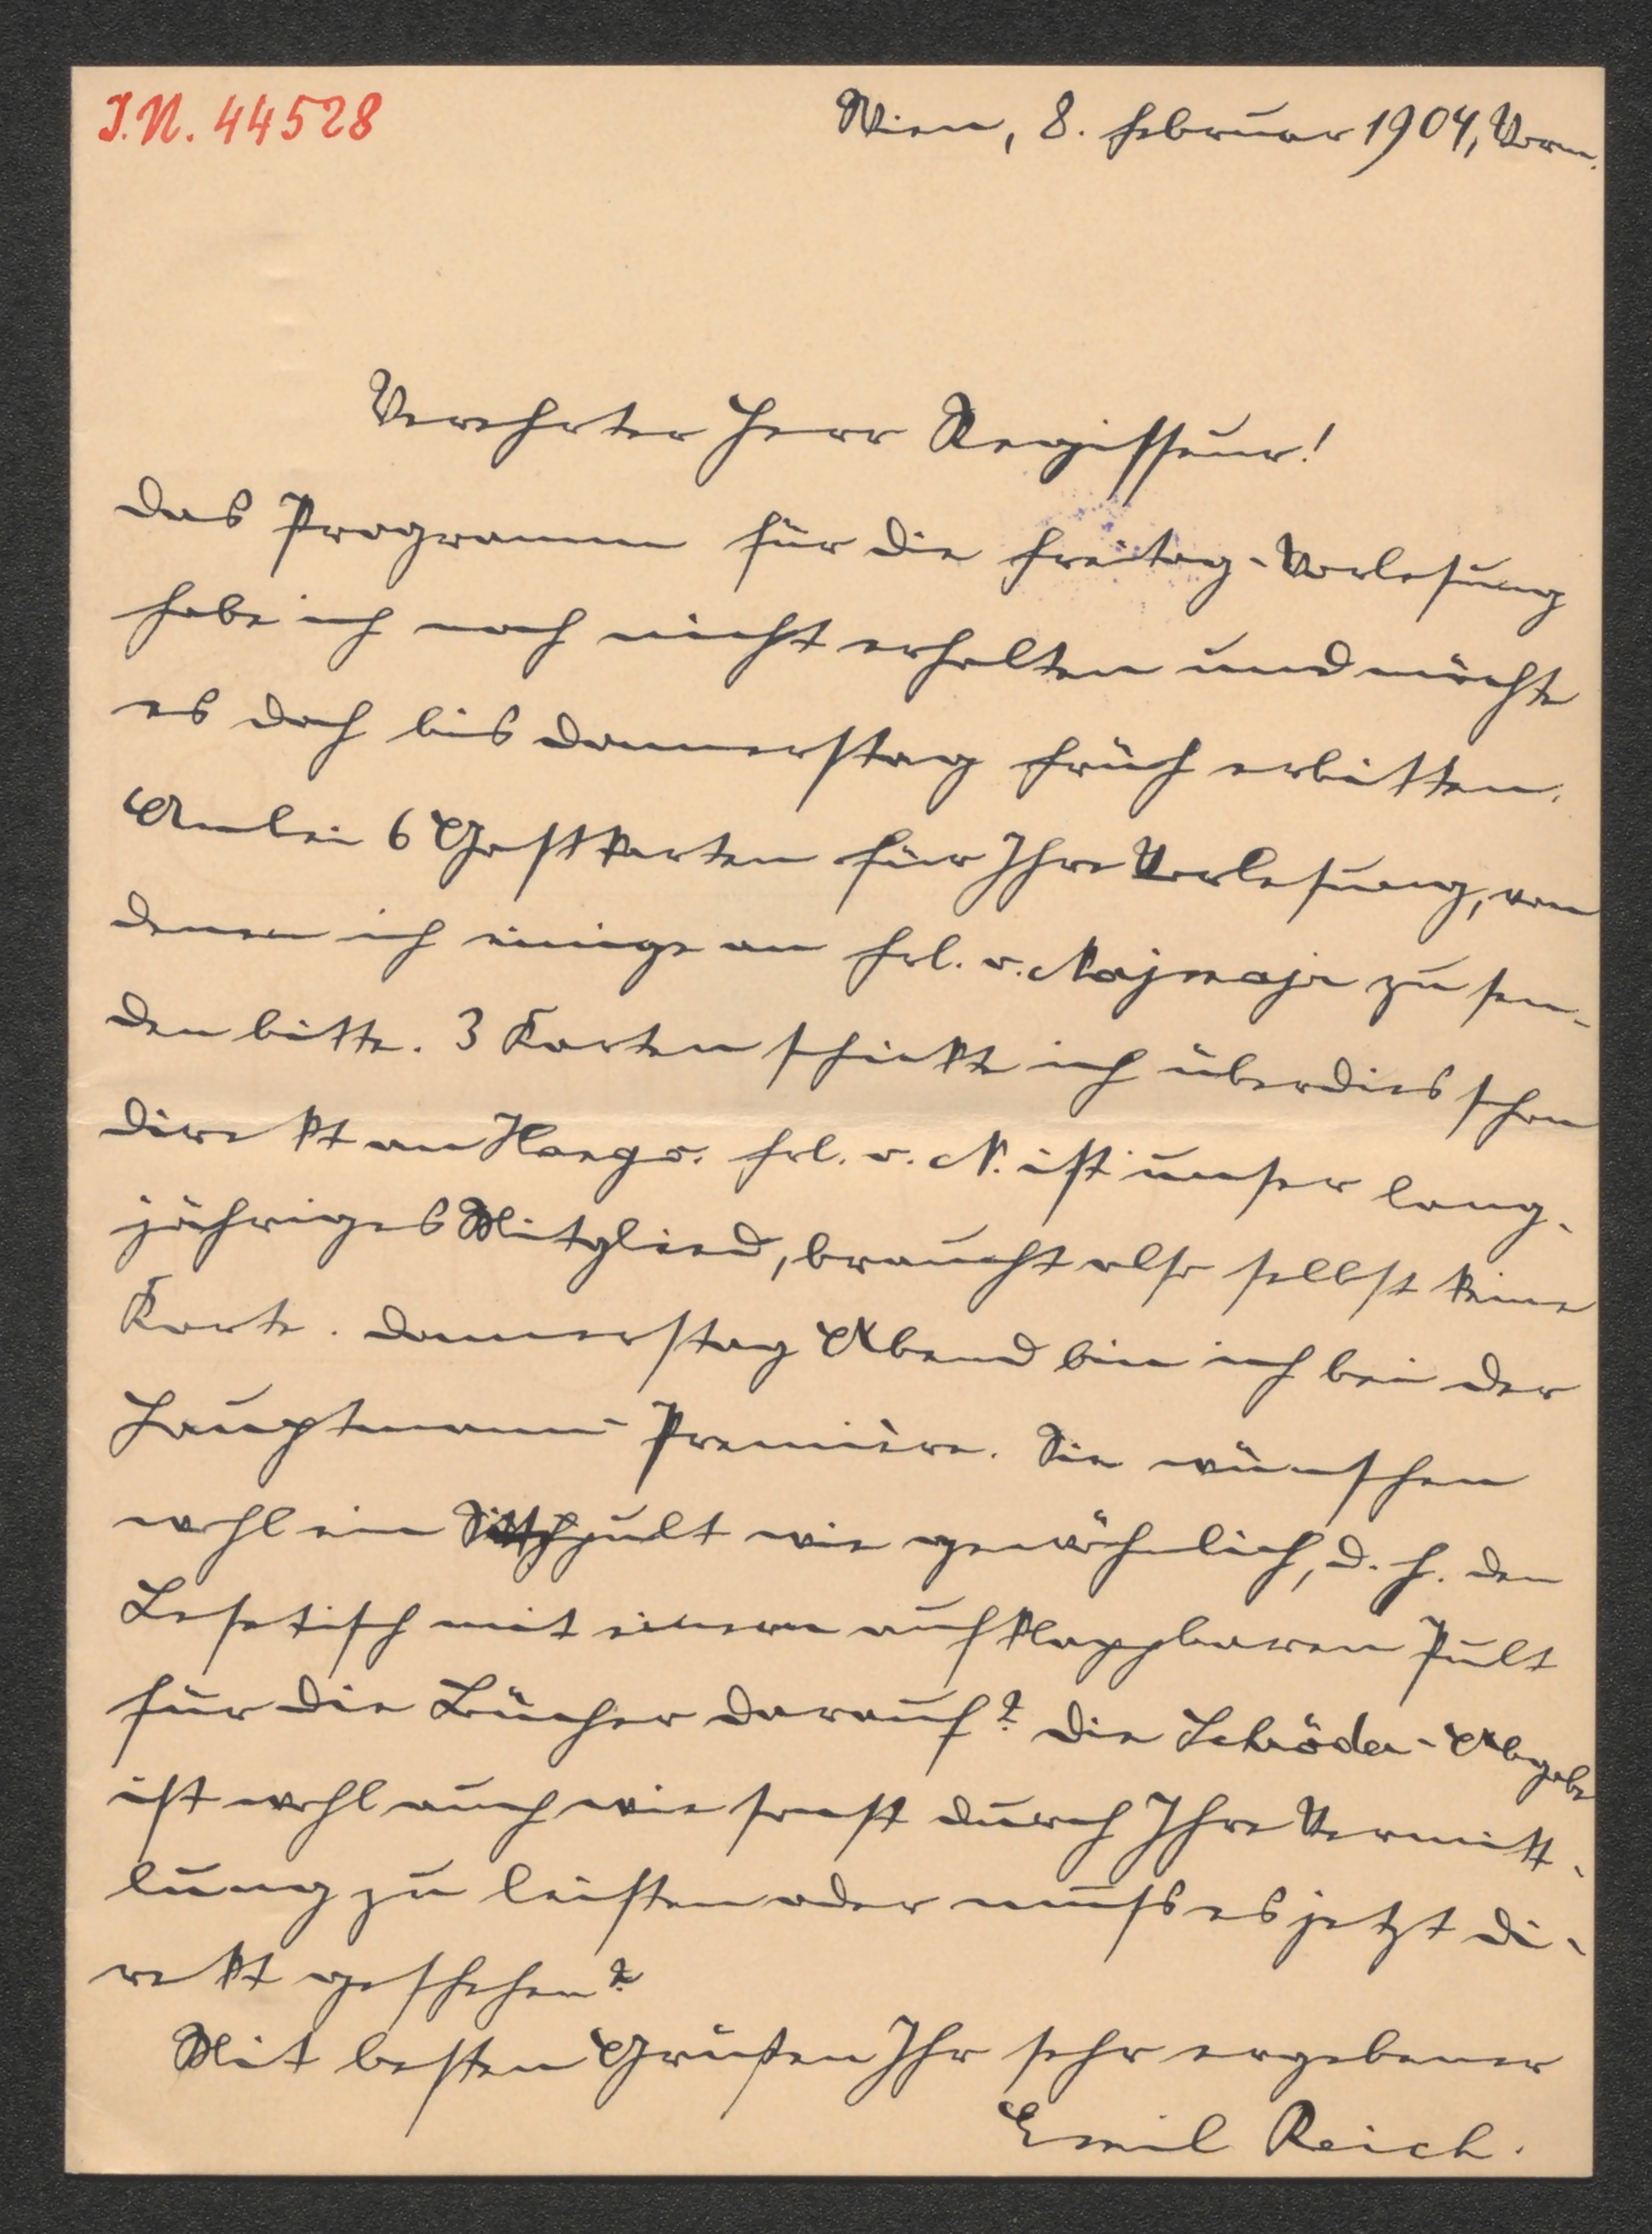 J.N. 44528
Wien, 8. Februar 1904, Vorm.
Verehrter Herr Regisseur!
Das Programm für die Freitag-Vorlesung
habe ich noch nicht erhalten und möchte
es doch bis Donnerstag früh erbitten.
Anbei 6 Gastkarten für Ihre Vorlesung, von
denen ich einige an Frl. v. Najmajr zu sen-
den bitte. 3 Karten schickte ich überdies schon
direkt an Haego. Frl. v. N. ist unser lang-
jähriges Mitglied, braucht also selbst keine
Karte. Donnerstag Abend bin ich bei der
Hauptmann-Première. Sie wünschen
wohl ein pult wie gewöhnlich, d. h. den
Lesetisch mit einem aufklappbaren Pult
für die Bücher darauf? Die Schröder-Abgabe
ist wohl auch wie sonst durch Ihre Vermitt-
lung zu leisten oder muß es jetzt di-
rekt geschehen?
Mit besten Grüßen Ihr sehr ergebener
Emil Reich.